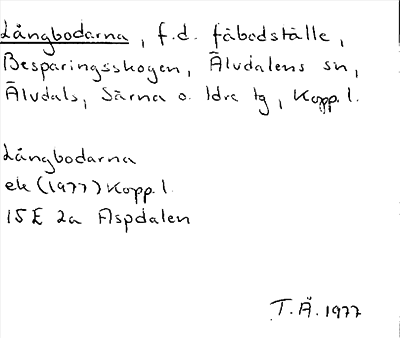 Långbodarna, f.d. fäbodställe,
Besparingsskogen, Älvdalens sn,
Älvdals, Särna o. Idre tg, Kopp. l.
Långbodarna
ek (1977) Kopp. l.
15E 2a Aspdalen
T.Å. 1977